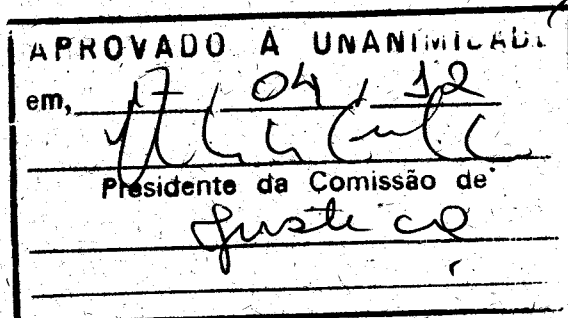 APROVADO A UNANIMIDADE
em, 17 / 04 / 12
Presidente da Comissão de
Justiça